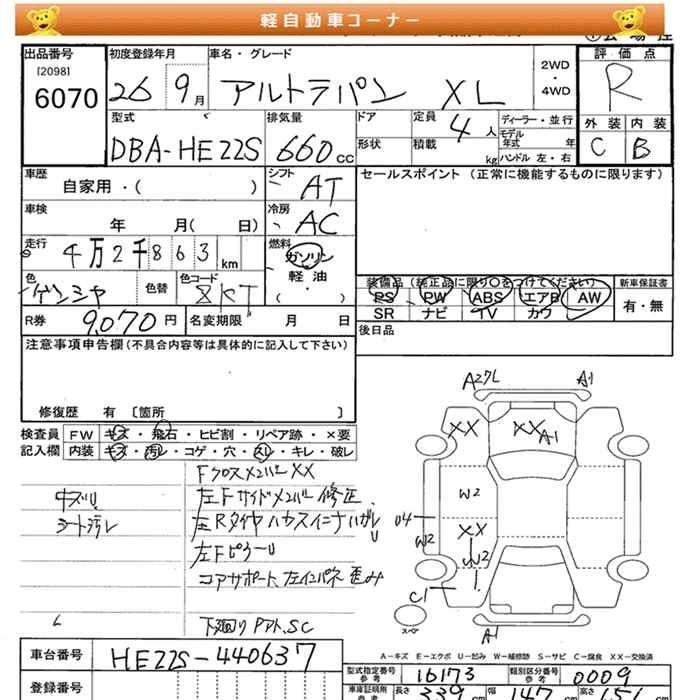 軽自動車コーナー
出品番号
[2098]
6070
初度登録年月
26 9月
車名・グレード
アルトラパン XL
2WD
・
4WD
評価点
R
外装 内装
C B
型式
DBA-HE22S
排気量
660cc
ドア
形状
定員
4人
積載
kg
ディーラー・並行
モデル
年式 年
ハンドル 左・右
車歴
自家用・( )
シフト
AT
セールスポイント (正常に機能するものに限ります)
車検
年 月( 日)
冷房
AC
走行
4万2千863km
燃料
ガソリン
軽油
( ・ )
色
ゲンシャ
色替
色コード
ZKT
装備品 (純正品に限り○をつけてください)
PS PW ABS エアB AW
SR ナビ TV カワ
新車保証書
有・無
R券 9,070円
名変期限 月 日
後日品
注意事項申告欄(不具合内容等は具体的に記入して下さい)
修復歴 有〔箇所 〕
検査員
記入欄
FW キズ・飛石・ヒビ割・リペア跡・×要
内装 キズ・汚レ・コゲ・穴・スレ・キレ・破レ
シート汚レ
FクロスメンバーXX
左Fサイドメンバー修正
左Rタイヤハウスインナハガレ
左Fピラーリ
コアサポート、左インパネ歪み
下廻りPアト、SC
A27L A1
XX XX A1
W2
04
W2
XX
W3
C1
スペア
A1
A-キズ E-エクボ U-凹み W-補修跡 S-サビ C-腐食 XX-交換済
車台番号 HE22S-440637
登録番号
型式指定番号
参考
16173
類別区分番号
参考
0009
車庫証明用
参考
長さ 339cm 幅 147 高さ 151